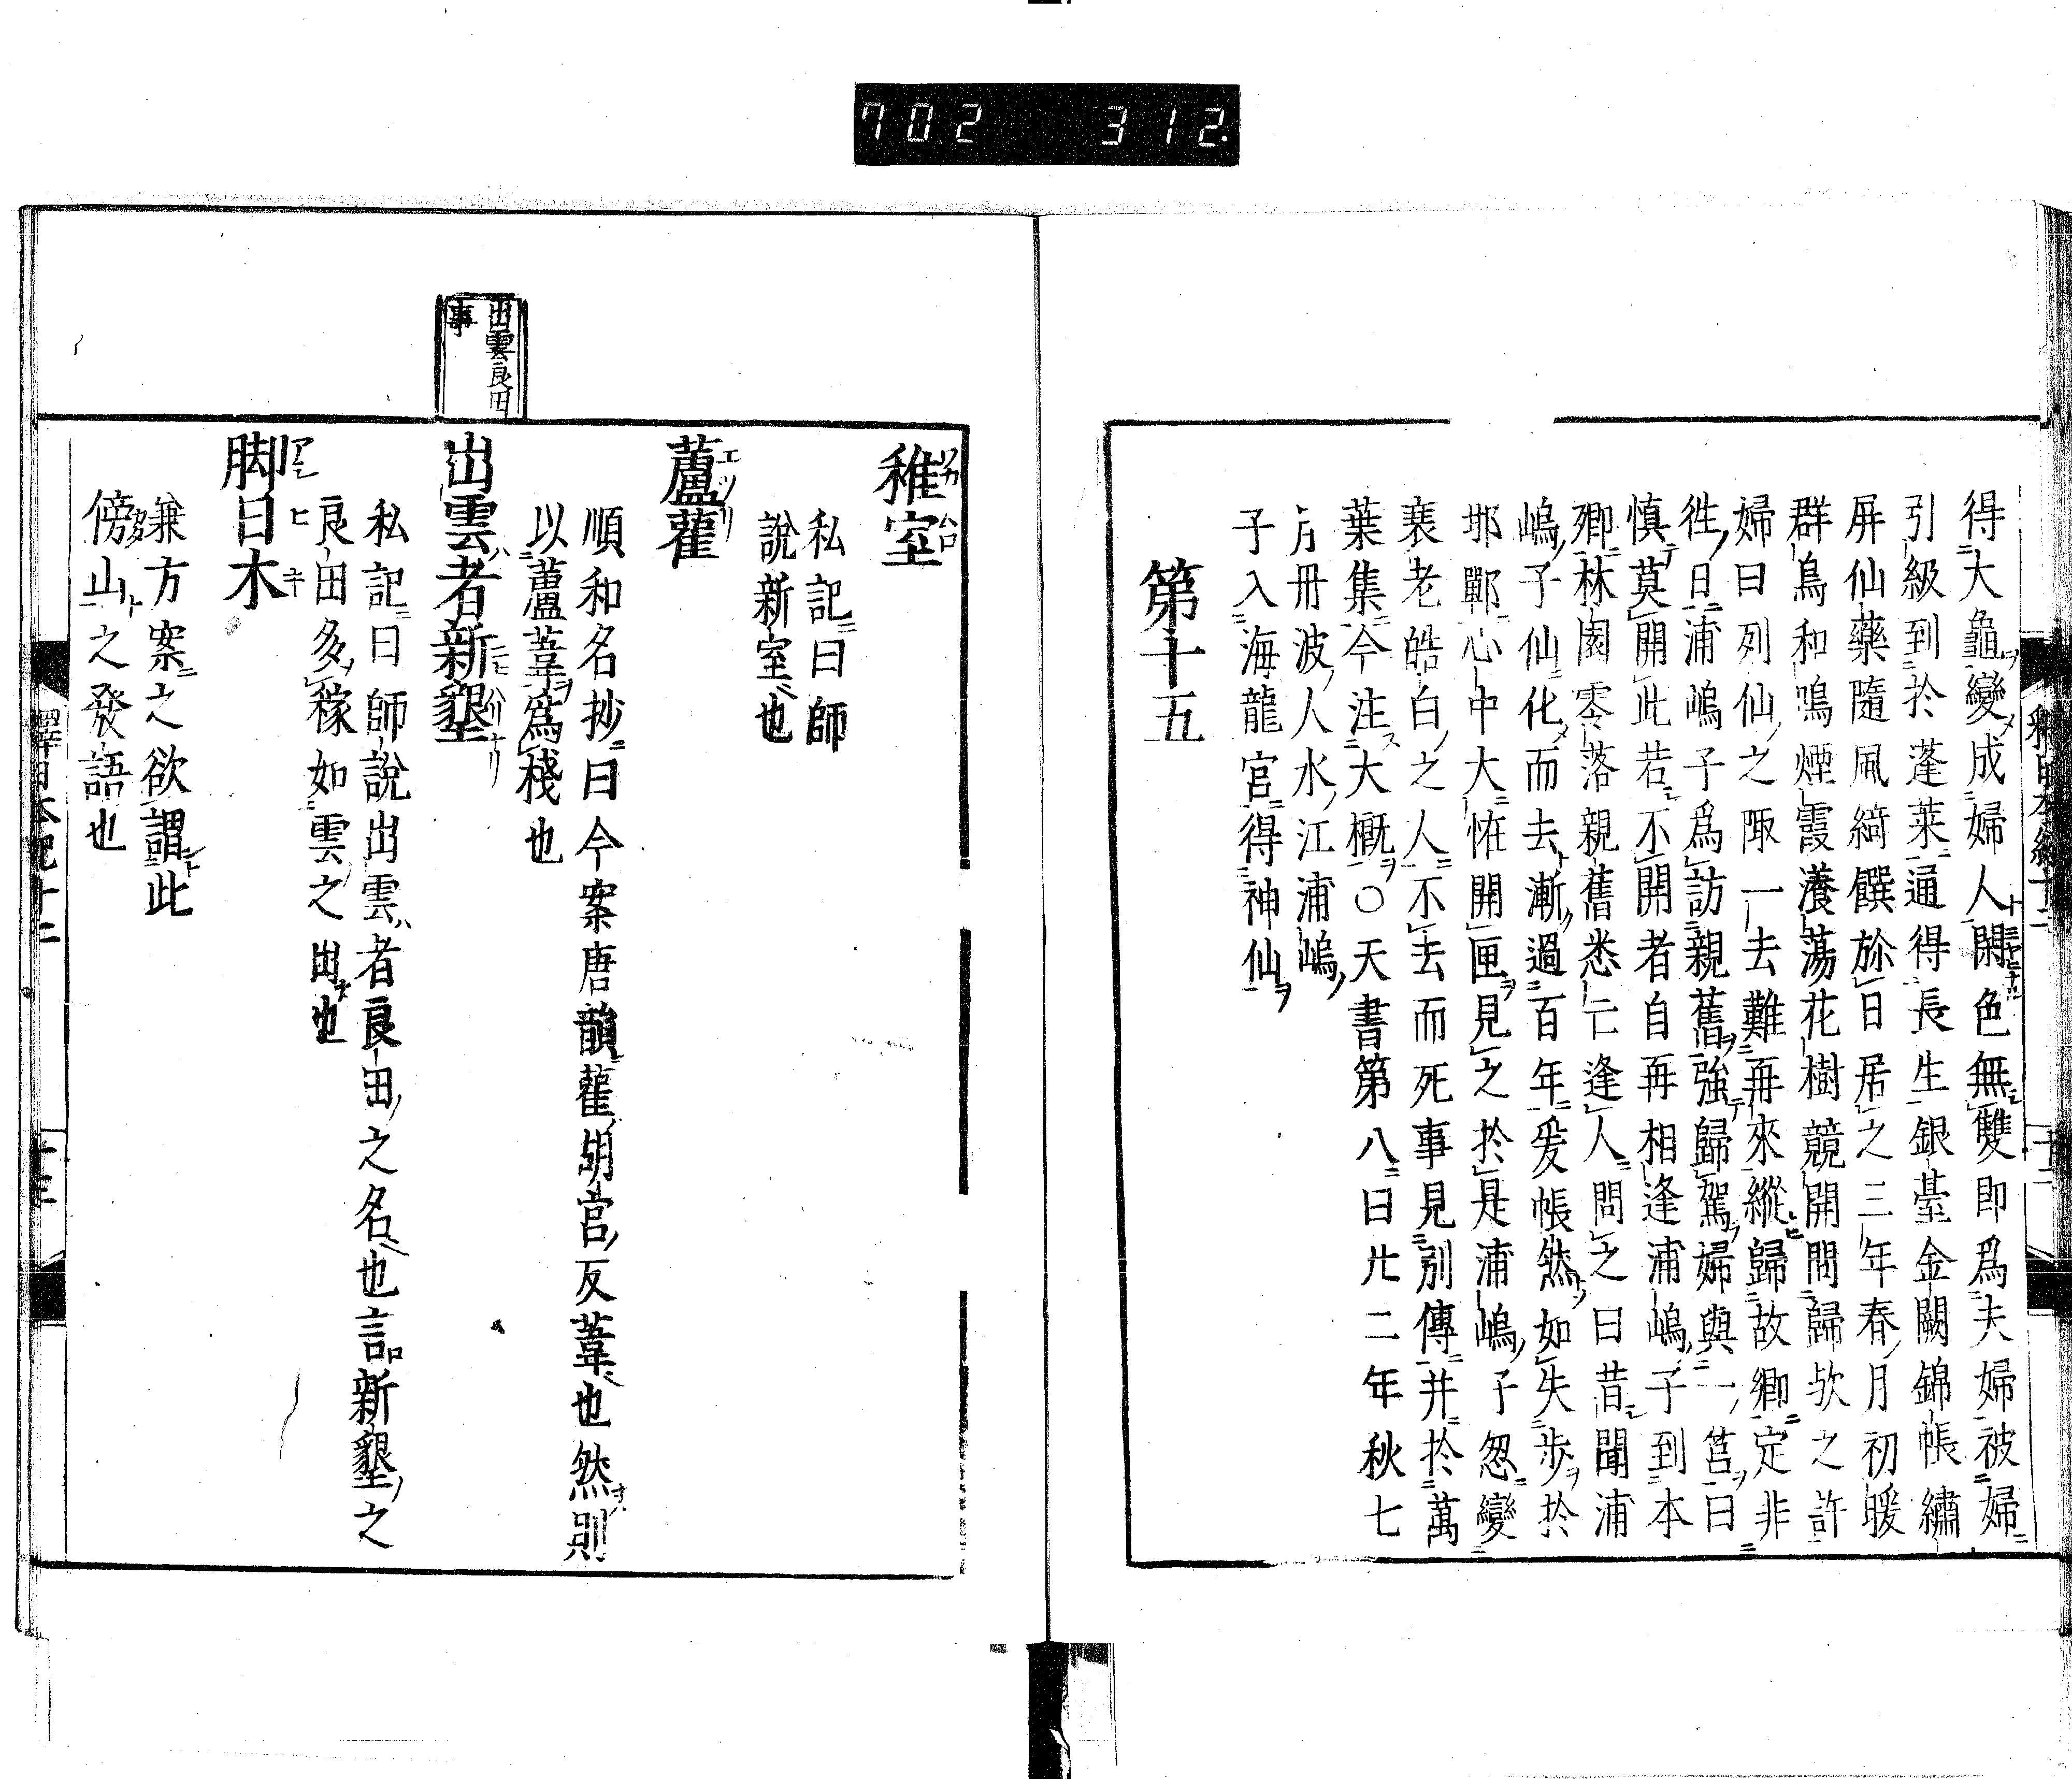 702 312.
釋日本紀十二
十二
得大龜變成婦人閑色無雙即爲夫婦被婦
引級到於蓬萊通得長生銀臺金闕錦帳繡
屏仙藥隨風綺饌旀日居之三年春月初暖
群鳥和鳴煙霞瀁蕩花樹競開問歸欤之許
婦曰列仙之陬一去難再來縱歸故鄉定非
徃日浦嶋子爲訪親舊強歸駕婦與一筥曰
慎莫開此若不開者自再相逢浦嶋子到本
鄉林園零落親舊悉亡逢人問之曰昔聞浦
嶋子仙化而去漸過百年爰帳然如失歩於
邯鄲心中大恠開匣見之於是浦嶋子忽變
衰老皓白之人不去而死事見別傳并於萬
葉集今注大概〇天書第八曰廿二年秋七
月丹波人水江浦嶋
子入海龍宮得神仙
第十五
稚室
私記曰師
說新室也
蘆雚
順和名抄曰今案唐韻雚胡官反葦也然則
以蘆葦爲棧也
出雲良田
事
出雲者新墾
私記曰師說出雲者良田之名也言新墾之
良田多稼如雲之出也
脚日木
兼方案之欲謂此
傍山之發語也
釋日本紀十二
十三